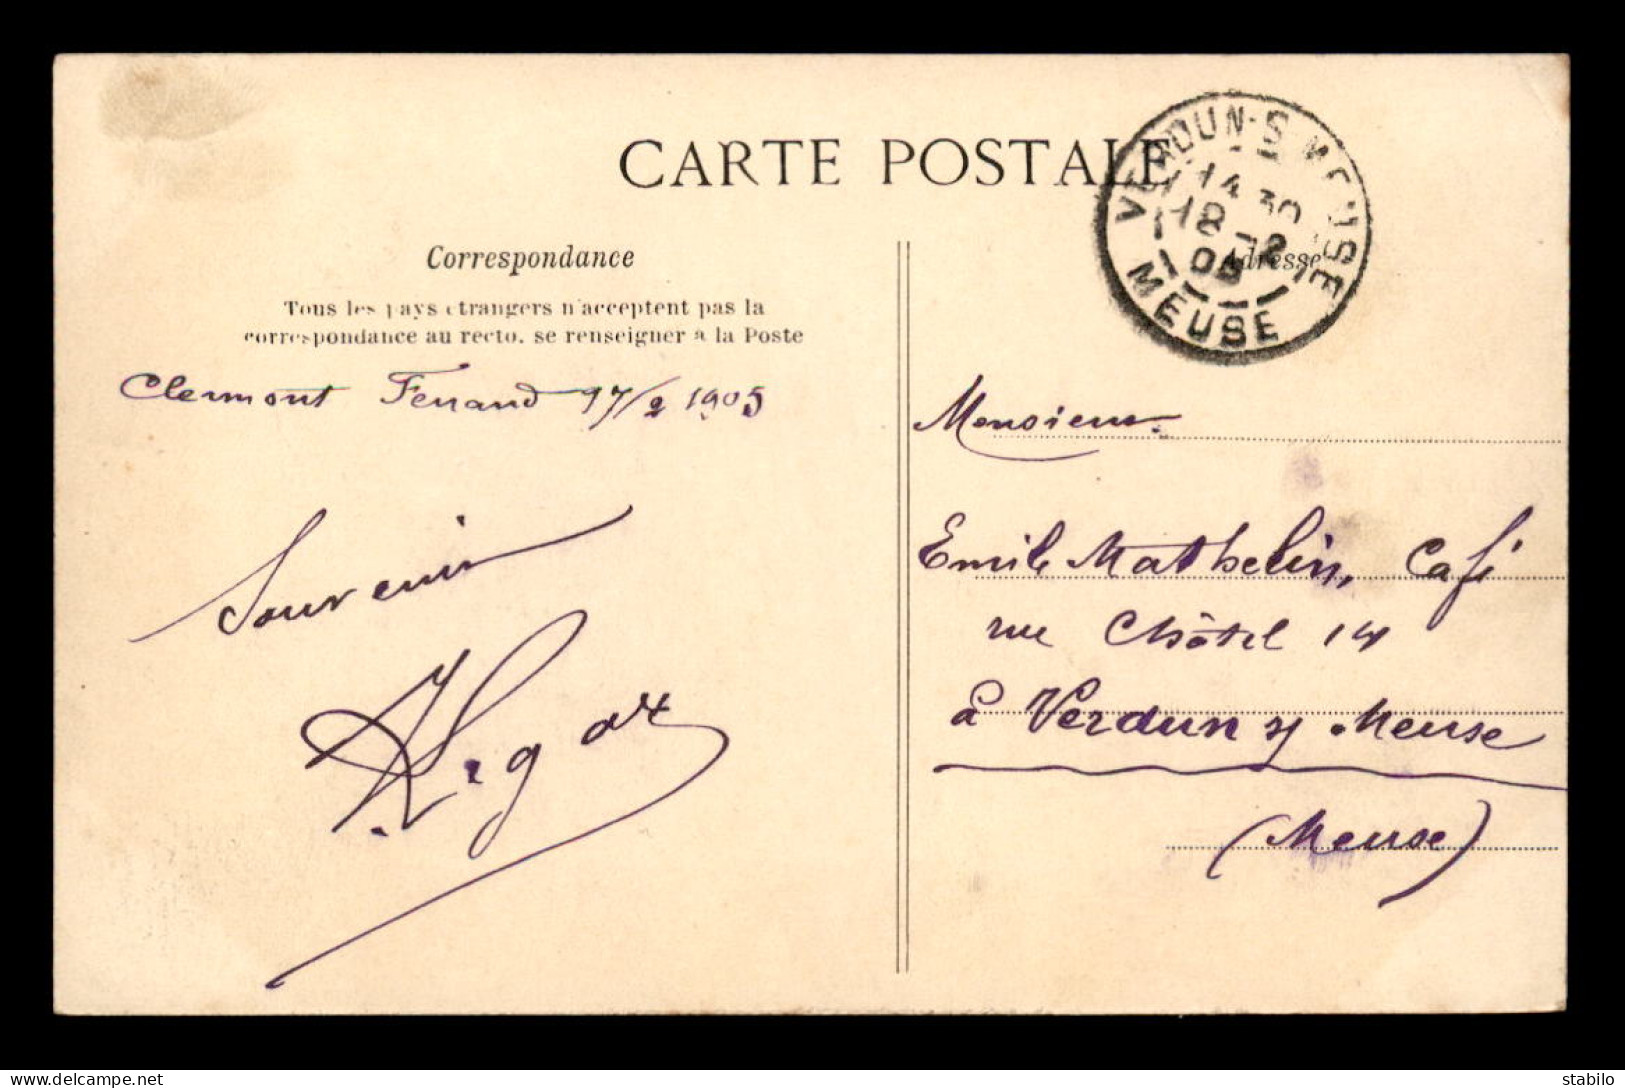 CARTE POSTALE
VERDUN-S-MEUSE
14 30
18 -2
05
MEUSE
Correspondance
Adresse
Tous les pays étrangers n'acceptent pas la
correspondance au recto, se renseigner à la Poste
Clermont Ferrand 17/2 1905
Souvenir
Monsieur
Emile Mathelin, Café
rue Châtel 14
à Verdun s/ Meuse
(Meuse)
delcampe.net
stabilo